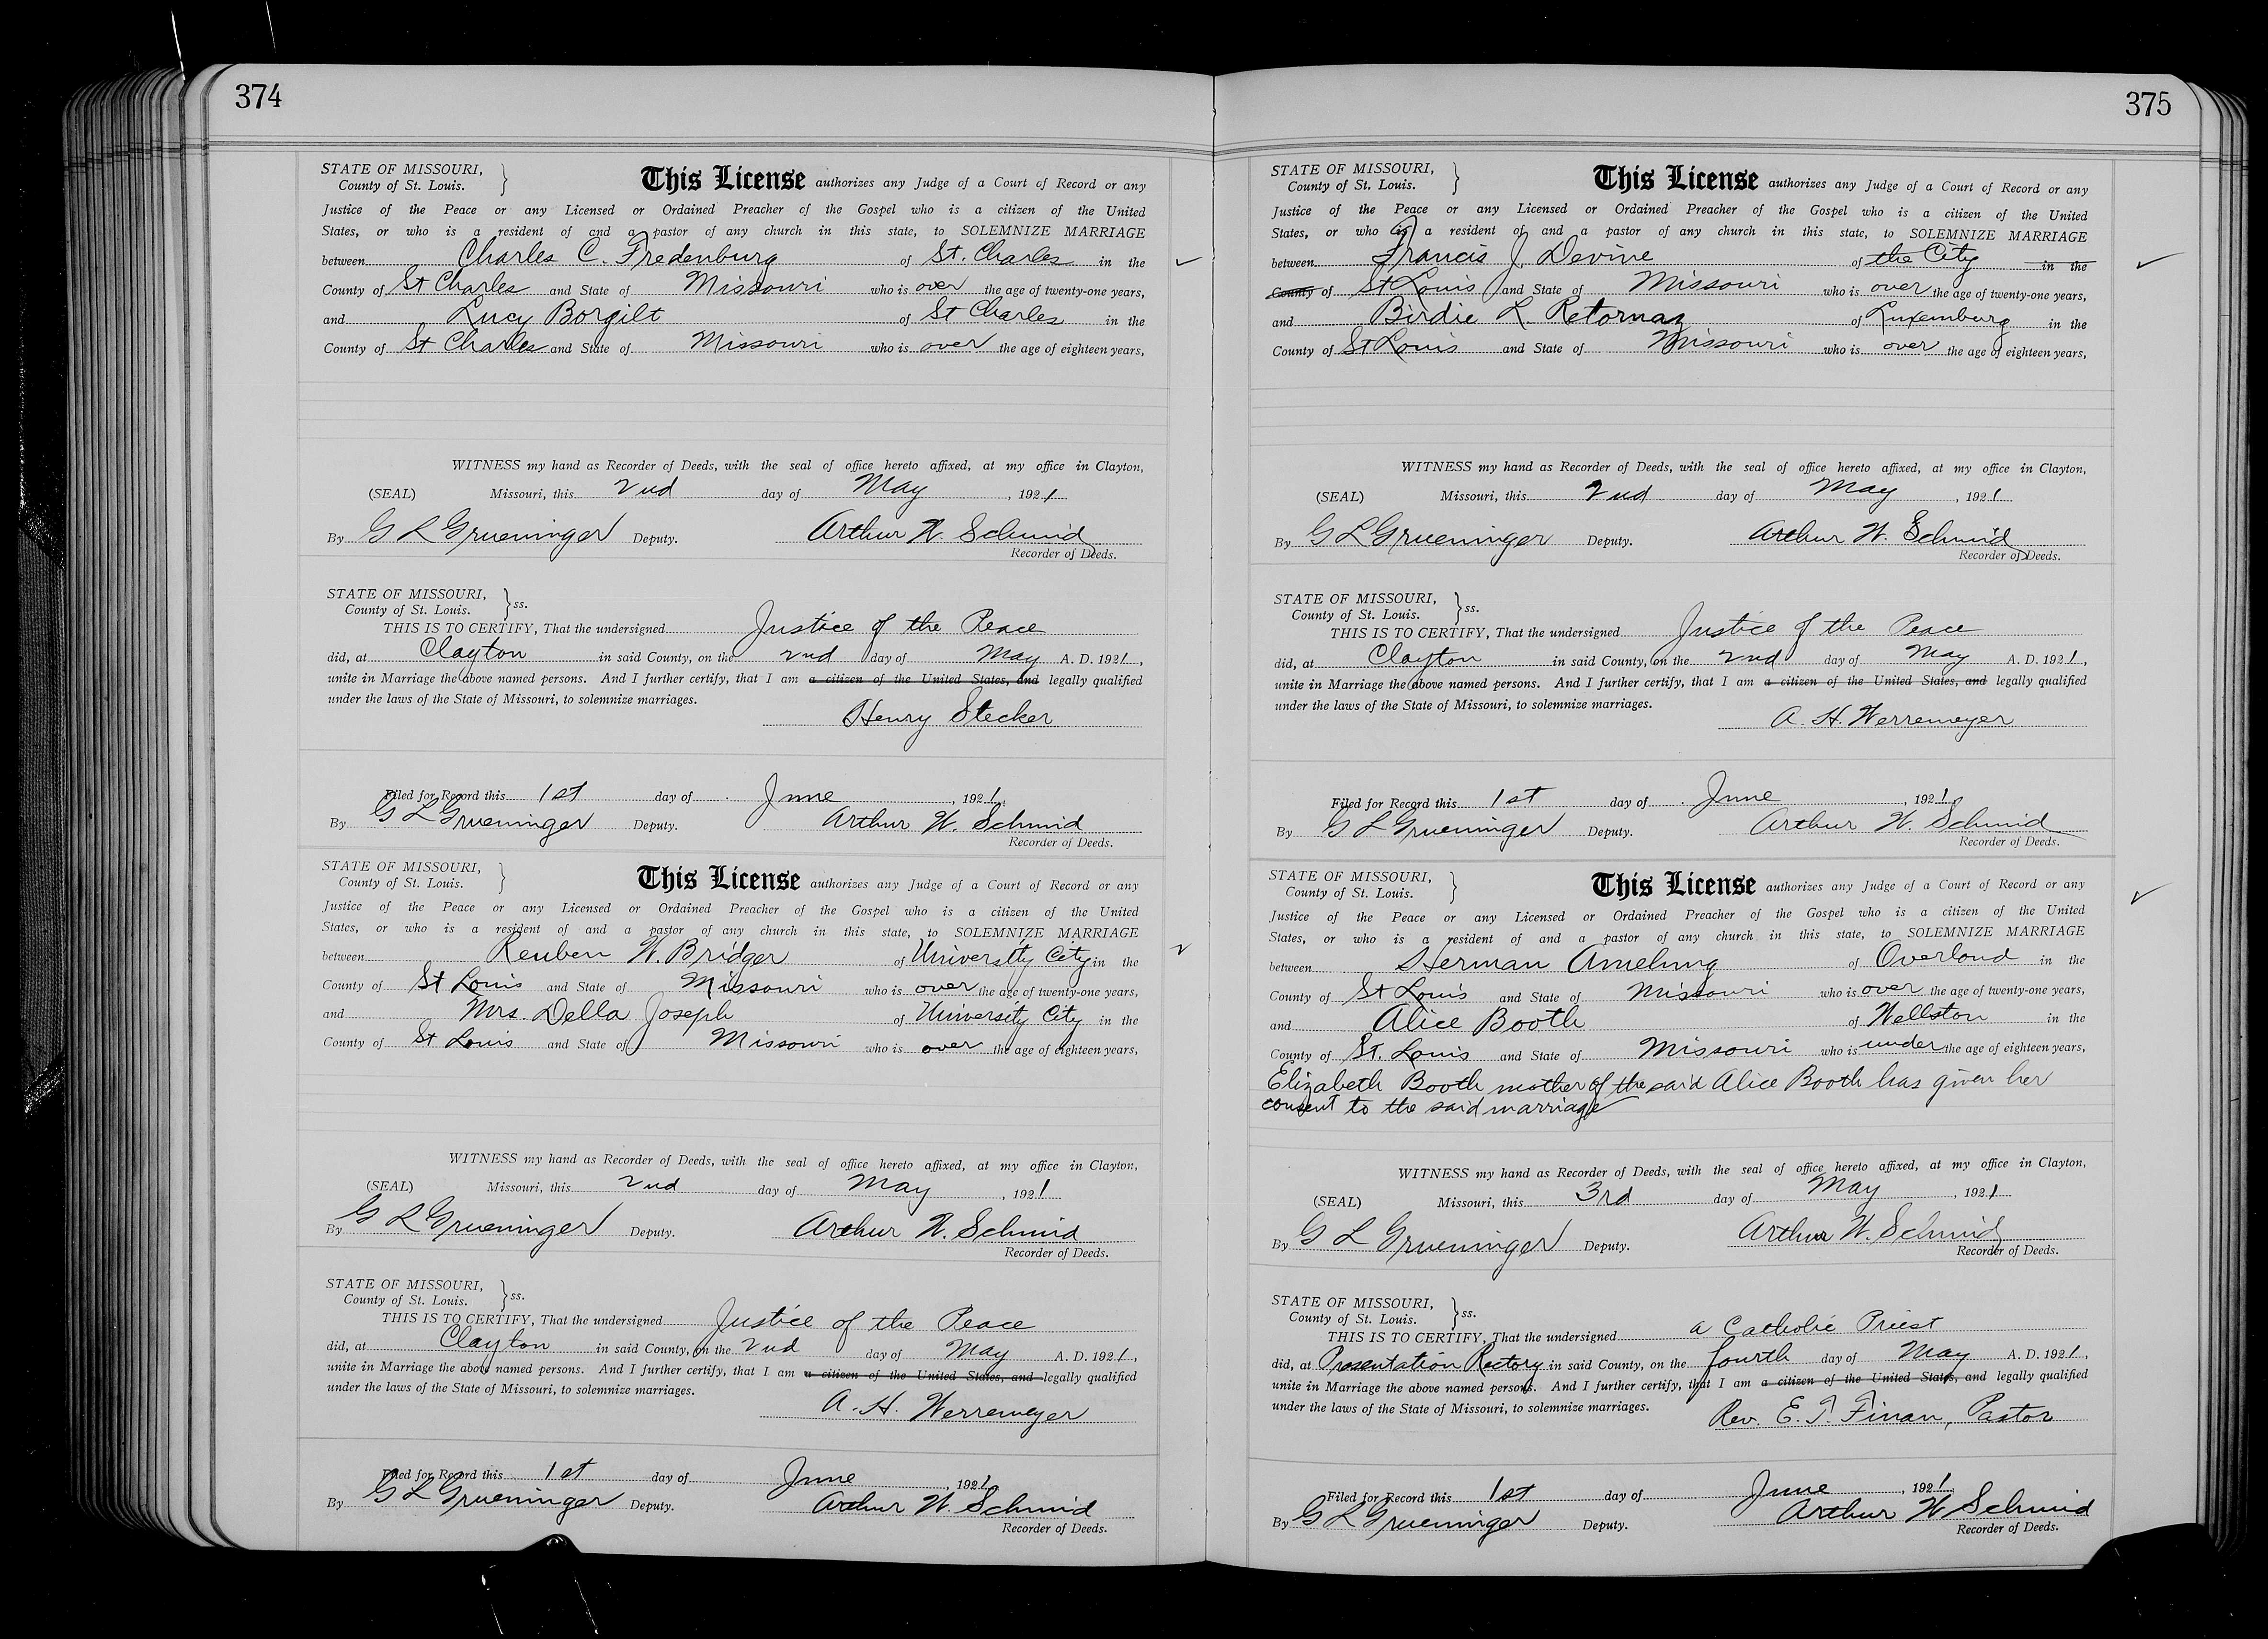 374
STATE OF MISSOURI,
County of St. Louis.
This License authorizes any Judge of a Court of Record or any
Justice of the Peace or any Licensed or Ordained Preacher of the Gospel who is a citizen of the United
States, or who is a resident of and a pastor of any church in this state, to SOLEMNIZE MARRIAGE
between Charles C. Fredenburg of St. Charles in the
County of St Charles and State of Missouri who is over the age of twenty-one years,
and Lucy Borgilt of St Charles in the
County of St Charles and State of Missouri who is over the age of eighteen years,
WITNESS my hand as Recorder of Deeds, with the seal of office hereto affixed, at my office in Clayton,
(SEAL) Missouri, this 2nd day of May, 1921
By G L Grueninger Deputy. Arthur W. Schmid
Recorder of Deeds.
STATE OF MISSOURI,
County of St. Louis. ss.
THIS IS TO CERTIFY, That the undersigned Justice of the Peace
did, at Clayton in said County, on the 2nd day of May A. D. 1921,
unite in Marriage the above named persons. And I further certify, that I am a citizen of the United States, and legally qualified
under the laws of the State of Missouri, to solemnize marriages.
Henry Stecker
Filed for Record this 1st day of June, 1921.
By G L Grueninger Deputy. Arthur W. Schmid
Recorder of Deeds.
STATE OF MISSOURI,
County of St. Louis.
This License authorizes any Judge of a Court of Record or any
Justice of the Peace or any Licensed or Ordained Preacher of the Gospel who is a citizen of the United
States, or who is a resident of and a pastor of any church in this state, to SOLEMNIZE MARRIAGE
between Reuben W. Bridger of University City in the
County of St Louis and State of Missouri who is over the age of twenty-one years,
and Mrs. Della Joseph of University City in the
County of St Louis and State of Missouri who is over the age of eighteen years,
WITNESS my hand as Recorder of Deeds, with the seal of office hereto affixed, at my office in Clayton,
(SEAL) Missouri, this 2nd day of May, 1921
By G L Grueninger Deputy. Arthur W. Schmid
Recorder of Deeds.
STATE OF MISSOURI,
County of St. Louis. ss.
THIS IS TO CERTIFY, That the undersigned Justice of the Peace
did, at Clayton in said County, on the 2nd day of May A. D. 1921,
unite in Marriage the above named persons. And I further certify, that I am a citizen of the United States, and legally qualified
under the laws of the State of Missouri, to solemnize marriages.
A. H. Werremeyer
Filed for Record this 1st day of June, 1921
By G L Grueninger Deputy. Arthur W. Schmid
Recorder of Deeds.
375
STATE OF MISSOURI,
County of St. Louis.
This License authorizes any Judge of a Court of Record or any
Justice of the Peace or any Licensed or Ordained Preacher of the Gospel who is a citizen of the United
States, or who is a resident of and a pastor of any church in this state, to SOLEMNIZE MARRIAGE
between Francis J. Devine of the City in the
County of St Louis and State of Missouri who is over the age of twenty-one years,
and Birdie L. Retornaz of Luxemburg in the
County of St Louis and State of Missouri who is over the age of eighteen years,
WITNESS my hand as Recorder of Deeds, with the seal of office hereto affixed, at my office in Clayton,
(SEAL) Missouri, this 2nd day of May, 1921
By G L Grueninger Deputy. Arthur W. Schmid
Recorder of Deeds.
STATE OF MISSOURI,
County of St. Louis. ss.
THIS IS TO CERTIFY, That the undersigned Justice of the Peace
did, at Clayton in said County, on the 2nd day of May A. D. 1921,
unite in Marriage the above named persons. And I further certify, that I am a citizen of the United States, and legally qualified
under the laws of the State of Missouri, to solemnize marriages.
A. H. Werremeyer
Filed for Record this 1st day of June, 1921.
By G L Grueninger Deputy. Arthur W. Schmid
Recorder of Deeds.
STATE OF MISSOURI,
County of St. Louis.
This License authorizes any Judge of a Court of Record or any
Justice of the Peace or any Licensed or Ordained Preacher of the Gospel who is a citizen of the United
States, or who is a resident of and a pastor of any church in this state, to SOLEMNIZE MARRIAGE
between Herman Amelung of Overland in the
County of St Louis and State of Missouri who is over the age of twenty-one years,
and Alice Booth of Wellston in the
County of St. Louis and State of Missouri who is under the age of eighteen years,
Elizabeth Booth mother of the said Alice Booth has given her
consent to the said marriage
WITNESS my hand as Recorder of Deeds, with the seal of office hereto affixed, at my office in Clayton,
(SEAL) Missouri, this 3rd day of May, 1921
By G L Grueninger Deputy. Arthur W. Schmid
Recorder of Deeds.
STATE OF MISSOURI,
County of St. Louis. ss.
THIS IS TO CERTIFY, That the undersigned a Catholic Priest
did, at Presentation Rectory in said County, on the fourth day of May A. D. 1921,
unite in Marriage the above named persons. And I further certify, that I am a citizen of the United States, and legally qualified
under the laws of the State of Missouri, to solemnize marriages.
Rev. E. J. Finan, Pastor
Filed for Record this 1st day of June, 1921
By G L Grueninger Deputy. Arthur W Schmid
Recorder of Deeds.